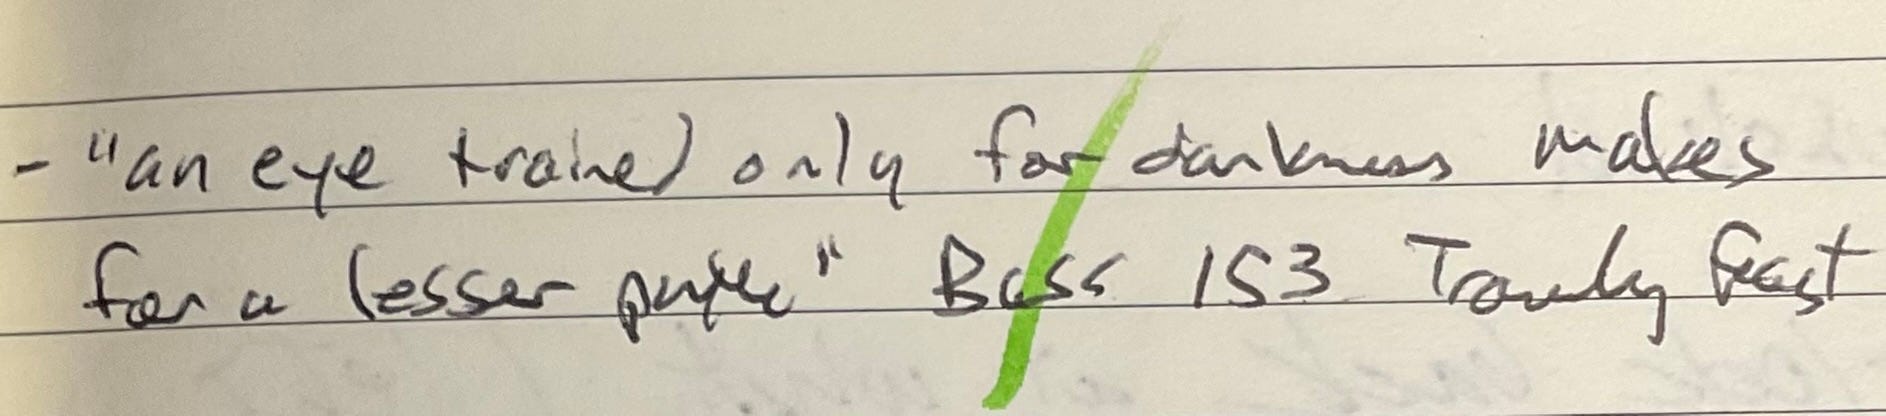 - "an eye trained only for darkness makes
for a lesser " Bass 153 Traveling Feast